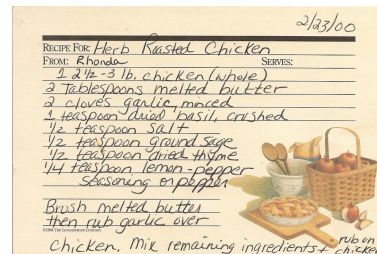 2/23/00
RECIPE FOR: Herb Roasted Chicken
FROM: Rhonda SERVES:
1 2 1/2 - 3 lb. chicken (whole)
2 Tablespoons melted butter
2 cloves garlic, minced
1 teaspoon dried basil, crushed
1/2 teaspoon salt
1/2 teaspoon ground sage
1/2 teaspoon dried thyme
1/4 teaspoon lemon-pepper
seasoning or pepper
Brush melted butter
then rub garlic over
©1994 THE LONGABERGER COMPANY
chicken. Mix remaining ingredients + rub on
chicken